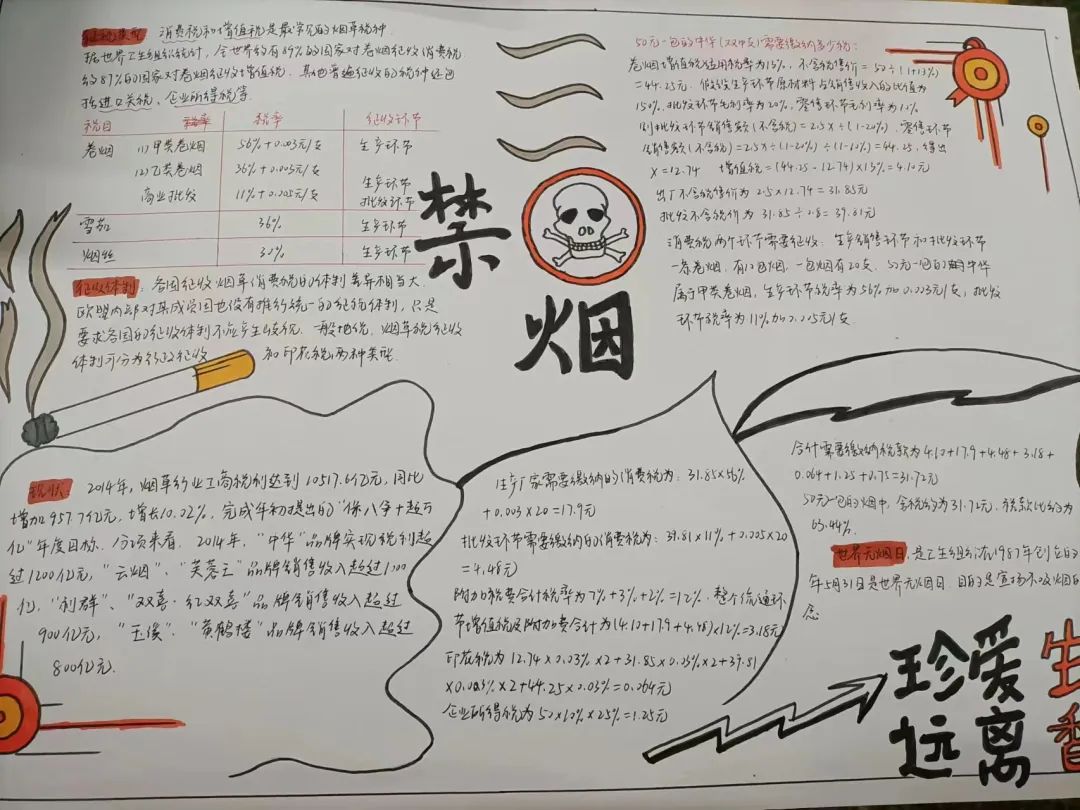 征税类型 消费税和增值税是最常见的烟草税种.
据世界卫生组织统计,全世界约有89%的国家对卷烟征收消费税
约87%的国家对卷烟征收增值税.其他普遍征收的税种还包
括进口关税、企业所得税等.
税目 税率 税率 征收环节
卷烟 (1)甲类卷烟 56%+0.003元/支 生产环节
(2)乙类卷烟 36%+0.003元/支 生产环节
商业批发 11%+0.005元/支 批发环节
雪茄 36% 生产环节
烟丝 30% 生产环节
征收体制:各国征收烟草消费税的体制差异相当大.
欧盟内部对其成员国也没有推行统一的征税体制,只是
要求各国的征收体制不应产生歧视.一般地说,烟草税征收
体制可分为 征收 和印花税两种类型.
禁
烟
50元一包的中华(双中支)需要缴纳多少税:
卷烟增值税适用税率为13%,不含税售价=50÷(1+13%)
=44.25元.假设生产环节原材料占销售收入的比值为
150%,批发环节毛利率为20%,零售环节毛利率为10%
则批发环节销售额(不含税)=2.5x÷(1-20%) 零售环节
销售额(不含税)=2.5x÷(1-20%)÷(1-10%)=44.25,得出
x=12.74 增值税=(44.25-12.74)×13%=4.10元
出厂不含税售价为2.5×12.74=31.85元
批发不含税价为31.85÷0.8=39.81元
消费税两个环节需要征收:生产销售环节和批发环节
一条卷烟,有10包烟,一包烟有20支.50元一包的中华
属于甲类卷烟,生产环节税率为56%加0.003元/支,批发
环节税率为11%加0.005元/支
现状:2014年,烟草行业工商税利达到10517.6亿元,同比
增加957.7亿元,增长10.02%,完成年初提出的"保八争十超万
亿"年度目标.分项来看,2014年,"中华"品牌实现税利超
过1200亿元,"云烟"、"芙蓉王"品牌销售收入超过1100
亿,"利群"、"双喜·红双喜"品牌销售收入超过
900亿元,"玉溪"、"黄鹤楼"品牌销售收入超过
800亿元.
生产厂家需要缴纳的消费税为:31.85×56%
+0.003×20=17.9元
批发环节需要缴纳的消费税为:39.81×11%+0.005×20
=4.48元
附加税费合计税率为7%+3%+2%=12%.整个流通环
节增值税及附加费合计为(4.10+17.9+4.48)×12%=3.18元
印花税为12.74×0.03%×2+31.85×0.03%×2+39.81
×0.03%×2+44.25×0.03%=0.064元
企业所得税为50×10%×25%=1.25元
合计需要缴纳税款为4.10+17.9+4.48+3.18+
0.064+1.25+0.75=31.72元
50元一包的烟中,含税约为31.72元,税款比约为
63.44%
世界无烟日,是卫生组织在1987年创立的
年5月31日是世界无烟日 目的是宣扬不吸烟的
念
珍爱生
远离香